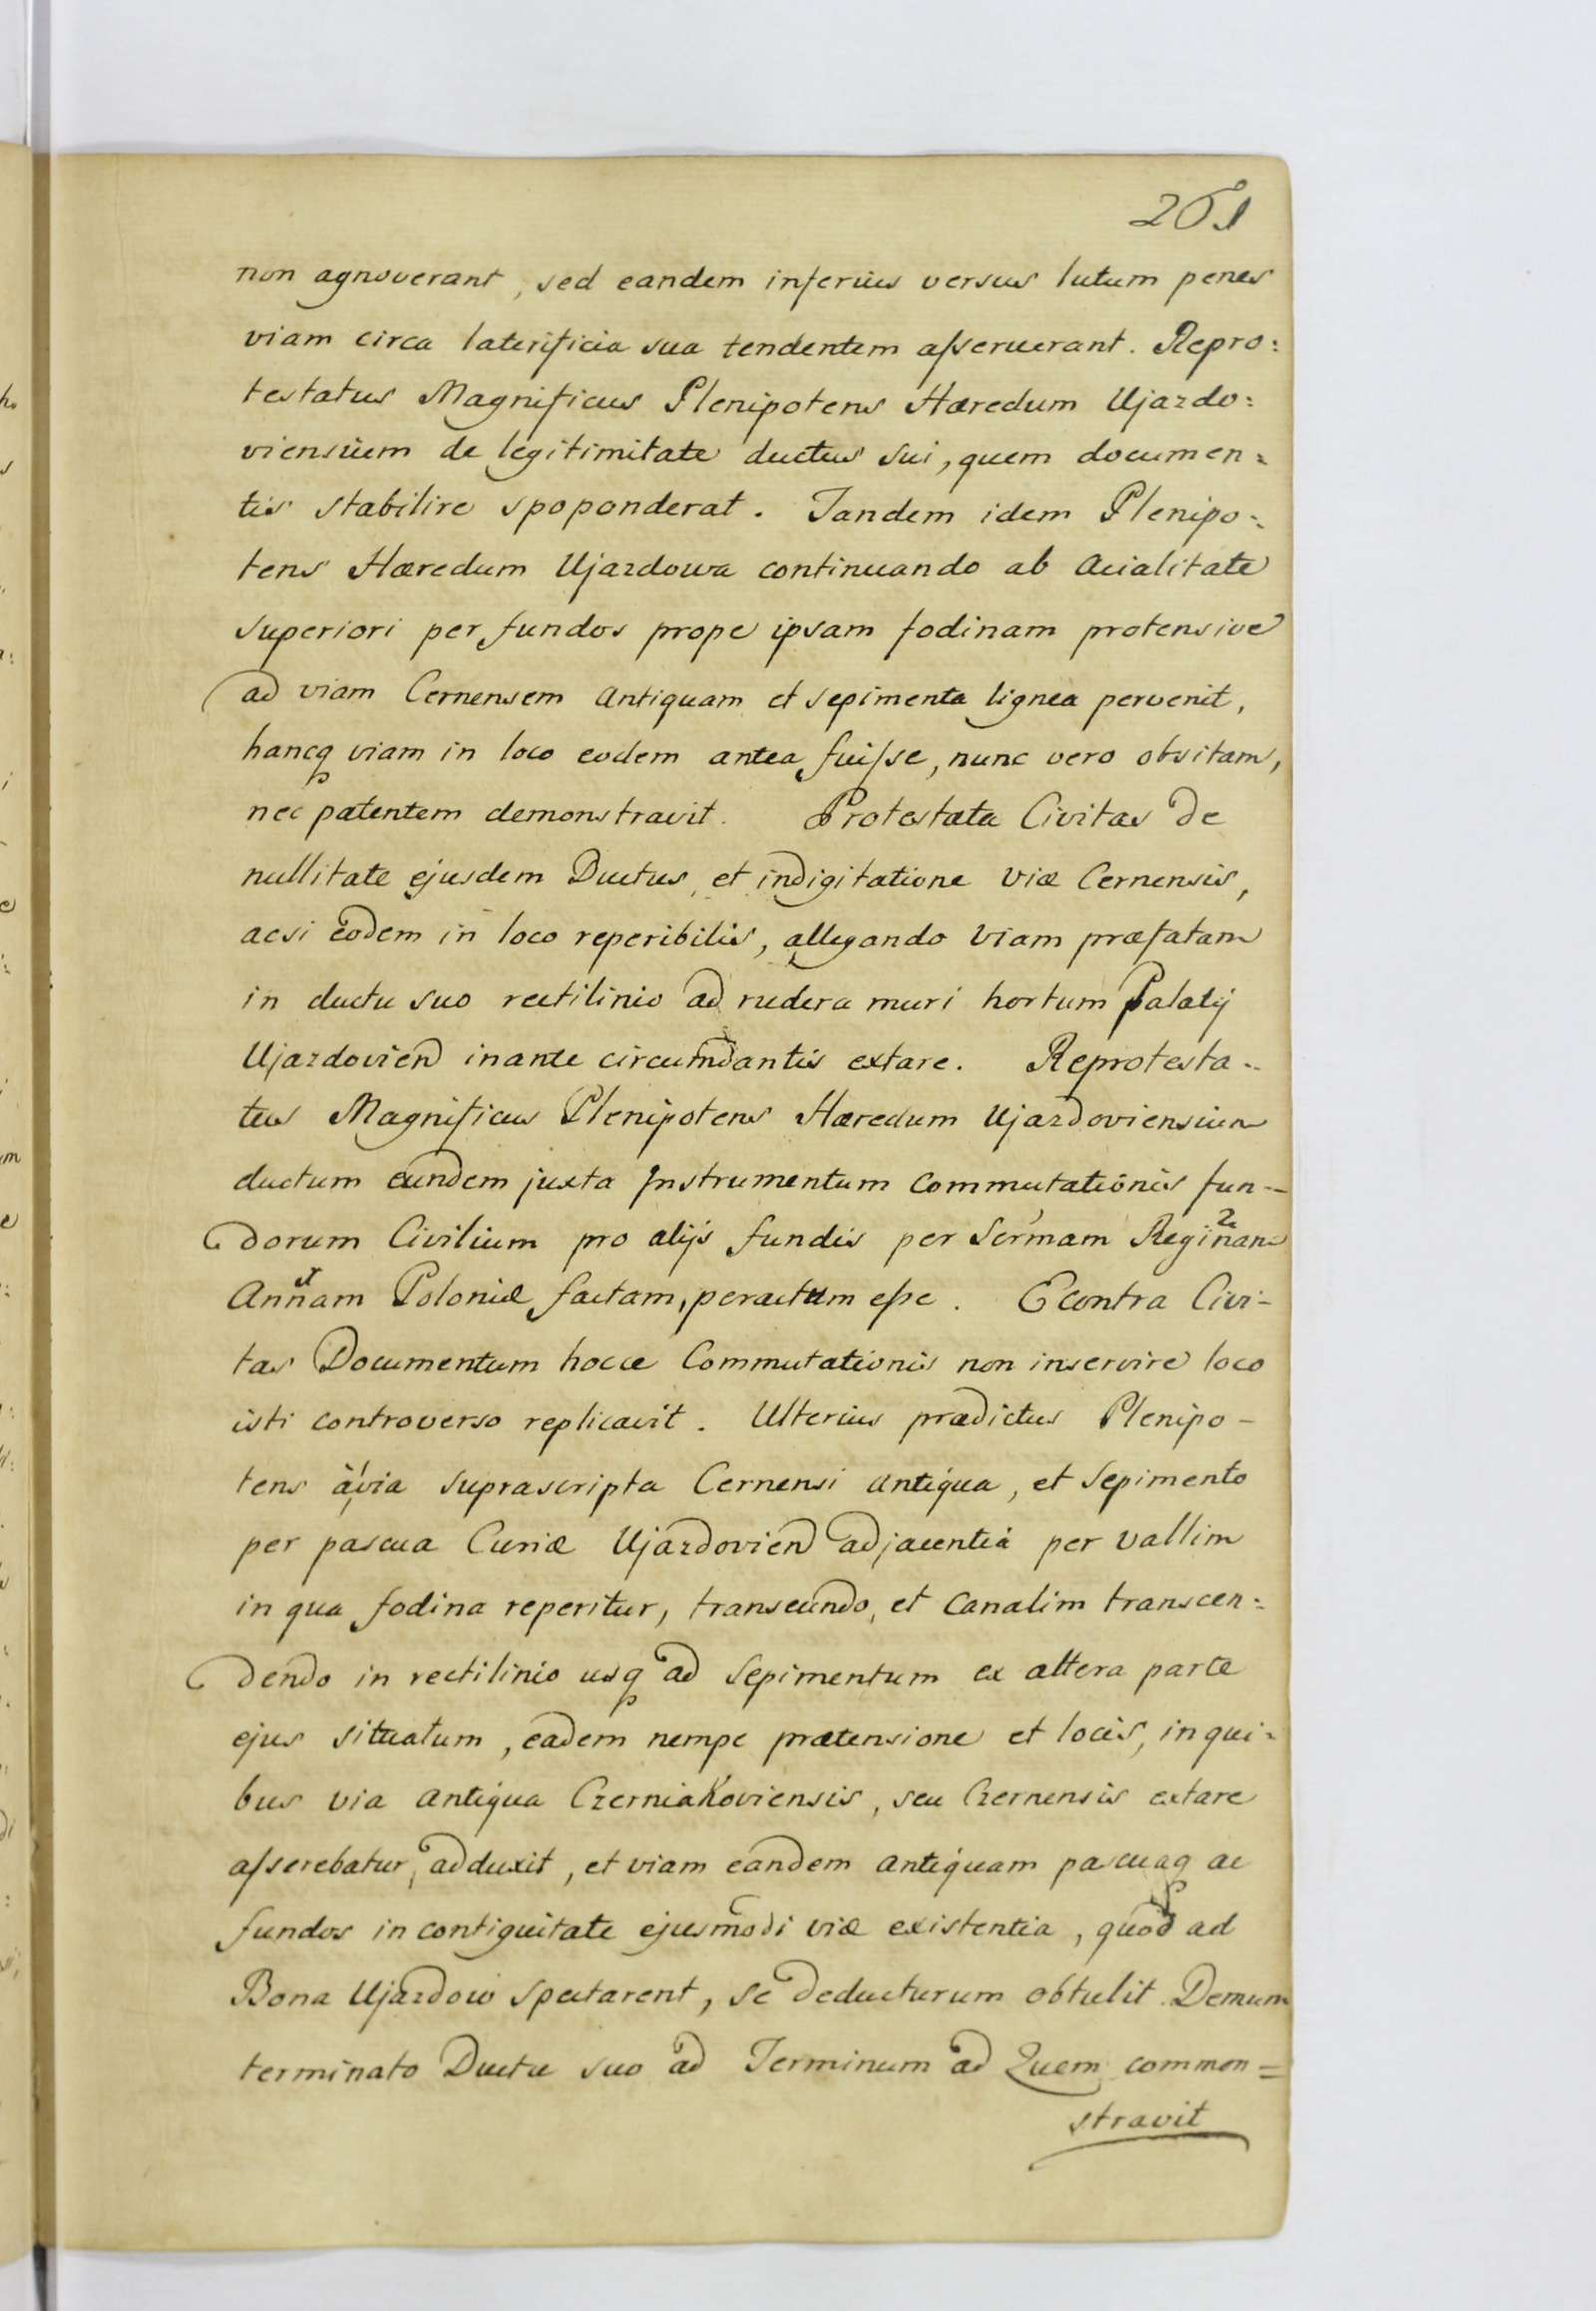 261
non agnoverant, sed eandem inferius versus lutum penes
viam circa laterificia sua tendentem asseruerant. Repro:
testatus Magnificus Plenipotens Hæredum Ujazdo:
viensium de legitimitate ductus sui, quem documen:
tis stabilire spoponderat. Tandem idem Plenipo:
tens Hæredum Ujazdowa continuando ab acialitate
superiori per fundos prope ipsam fodinam protensive
ad viam Cernensem Antiquam et sepimenta lignea pervenit,
hancq viam in loco eodem antea fuisse, nunc vero obsitam,
nec patentem demonstravit. Protestata Civitas de
nullitate ejusdem Ductus, et indigitatione viæ Cernensis,
acsi eodem in loco reperibilis, allegando viam præfatam
in ductu suo rectilinio ad rudera muri hortum Palatij
Ujazdovien inante circumdantis extare. Reprotesta:
tus Magnificus Plenipotens Hæredum Ujazdoviensium
ductum eundem juxta Instrumentum commutationis fun-
dorum Civilium pro alijs fundis per Sermam Reginam
Annam Poloniæ factam, peractum esse. Econtra Civi-
tas Documentum hocce Commutationis non inservire loco
isti controverso replicavit. Ulterius prædictus Plenipo-
tens à via suprascripta Cernensi antiqua, et Sepimento
per pascua Curiæ Ujazdovien adjacentia per vallim
in qua fodina reperitur, transeundo, et Canalim transcen:
dendo in rectilinio usq ad Sepimentum ex altera parte
ejus situatum, eadem nempe prætensione et locis, in qui:
bus via antiqua Czerniakoviensis, seu Czernensis extare
asserebatur, adduxit, et viam eandem antiquam pascuaq ac
fundos in contiguitate ejusmodi viæ existentia, quod ad
Bona Ujazdow spectarent, se deducturum obtulit. Demum
terminato Ductu suo ad Terminum ad Quem common=
stravit